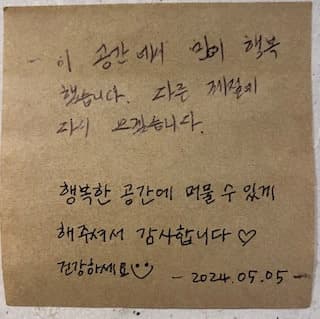 - 이 공간에서 많이 행복
했습니다. 다른 계절에
다시 오겠습니다.
행복한 공간에 머물 수 있게
해주셔서 감사합니다♡
건강하세요
- 2024.05.05 -